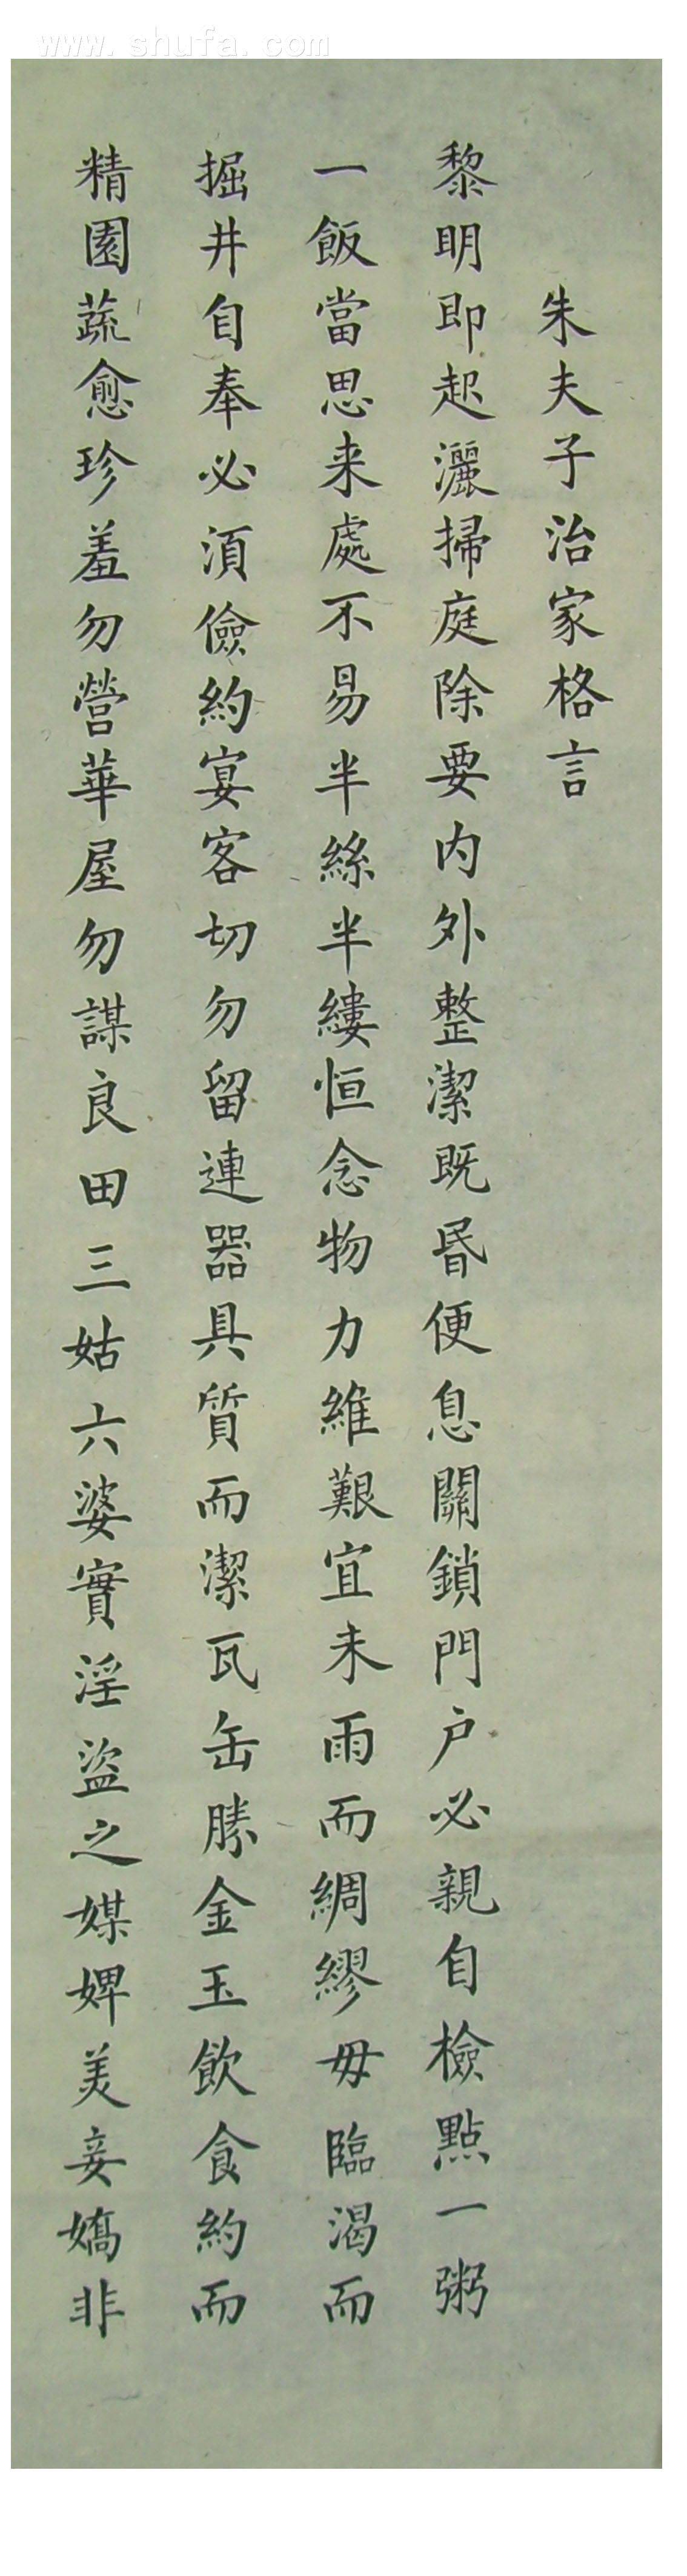 www.shufa.com
朱夫子治家格言
黎明即起灑掃庭除要内外整潔既昬便息關鎖門户必親自檢點一粥
一飯當思来處不易半絲半縷恒念物力維艱宜未雨而綢繆毋臨渴而
掘井自奉必湏儉約宴客切勿留連器具質而潔瓦缶勝金玉飲食約而
精園蔬愈珍羞勿營華屋勿謀良田三姑六婆實淫盜之媒婢美妾嬌非